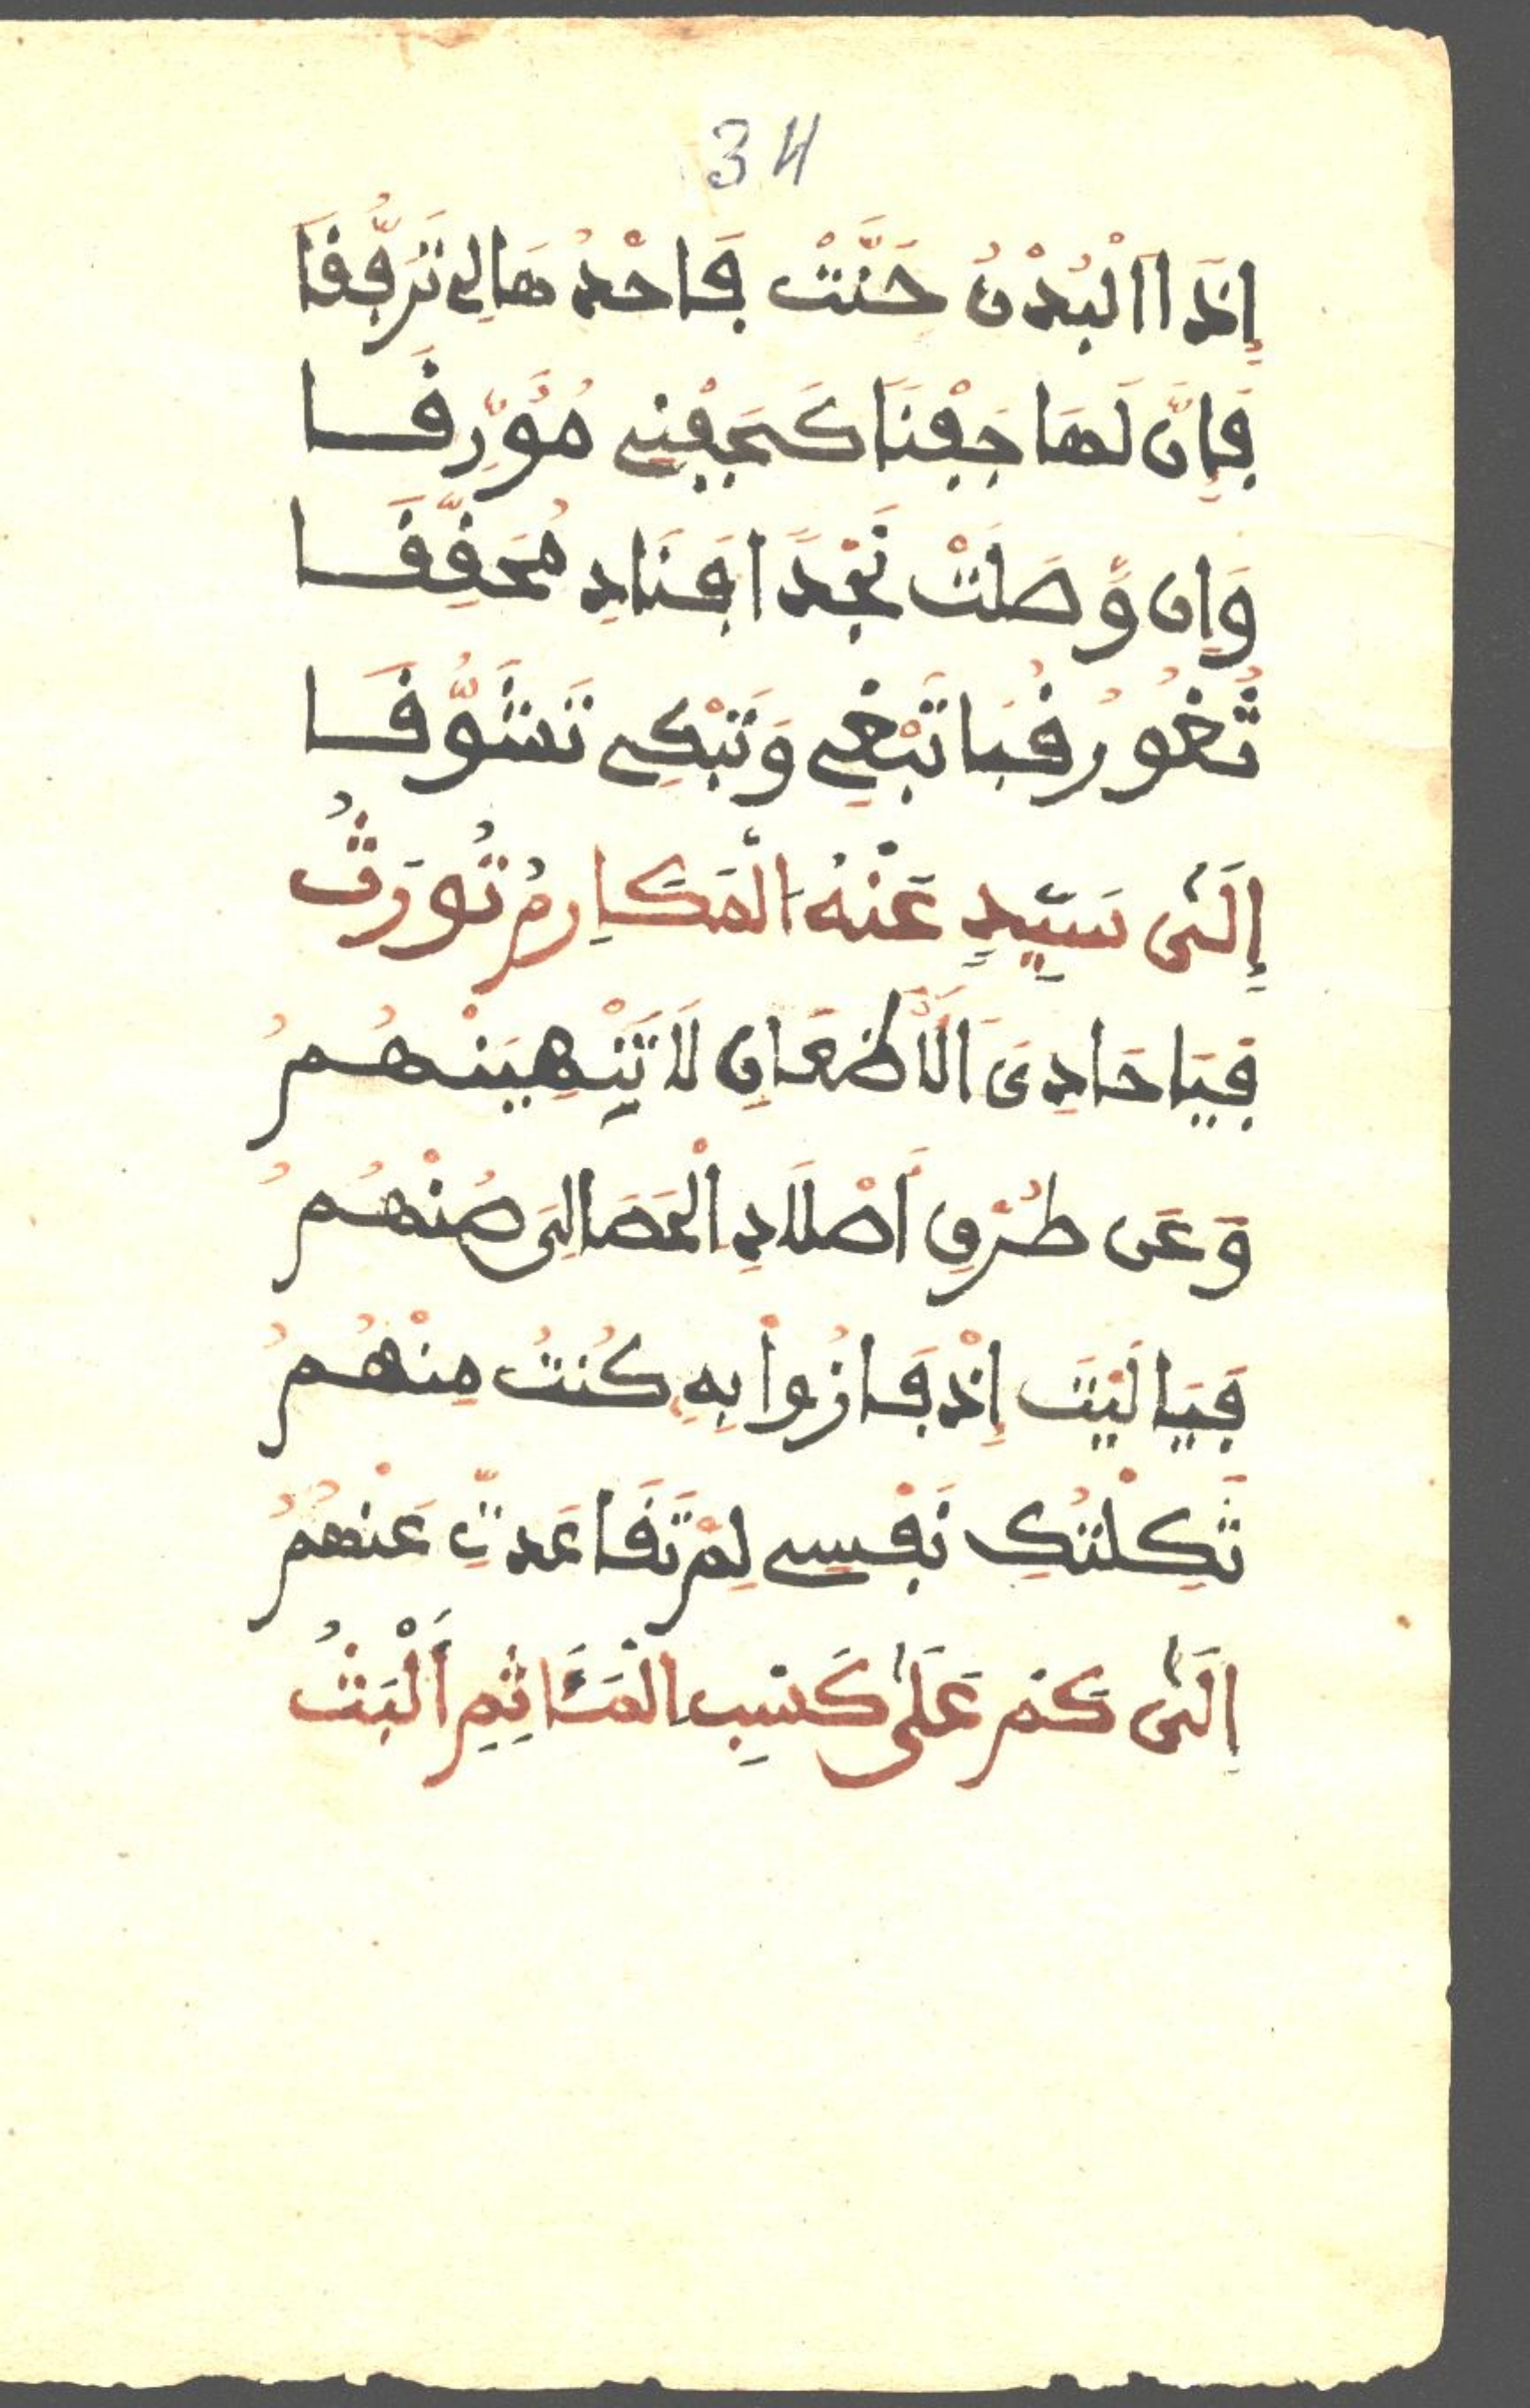 34
إِذَا اَلْبُدْنُ حَنَّتْ فَاحْدُهَا لِي تَرَفُّقَا
فَإِنَّ لَهَا جَفْنًا كَجَفْنِي مُؤَرَّقَا
وَإِن وَّصَلَتْ نَجْدًا فَنَادِ مُحَقِّقَا
ثُغُورُ قُبَا تَبْغِي وَتَبْكِي تَشَوُّقَا
إِلَىٰ سَيِّدٍ عَنْهُ اَلْمَكَارِمُ تُورَثُ
فَيَا حَادِيَ اَلْأَظْعَانِ لَا تُنْهِيَنْهُمُ
وَعَن طُرْقِ أَصْلَادِ الْحَصَا لِيَ صُنْهُمُ
فَيَا لَيْتَ إِذْ فَازُوا بِهِ كُنتُ مِنْهُمُ
ثَكِلْتُكِ نَفْسِي لِمْ تَقَاعَدتِّ عَنْهُمُ
إِلَىٰ كَمْ عَلَىٰ كَسْبِ الْمَـَٔاثِمِ أَلْبَثُ